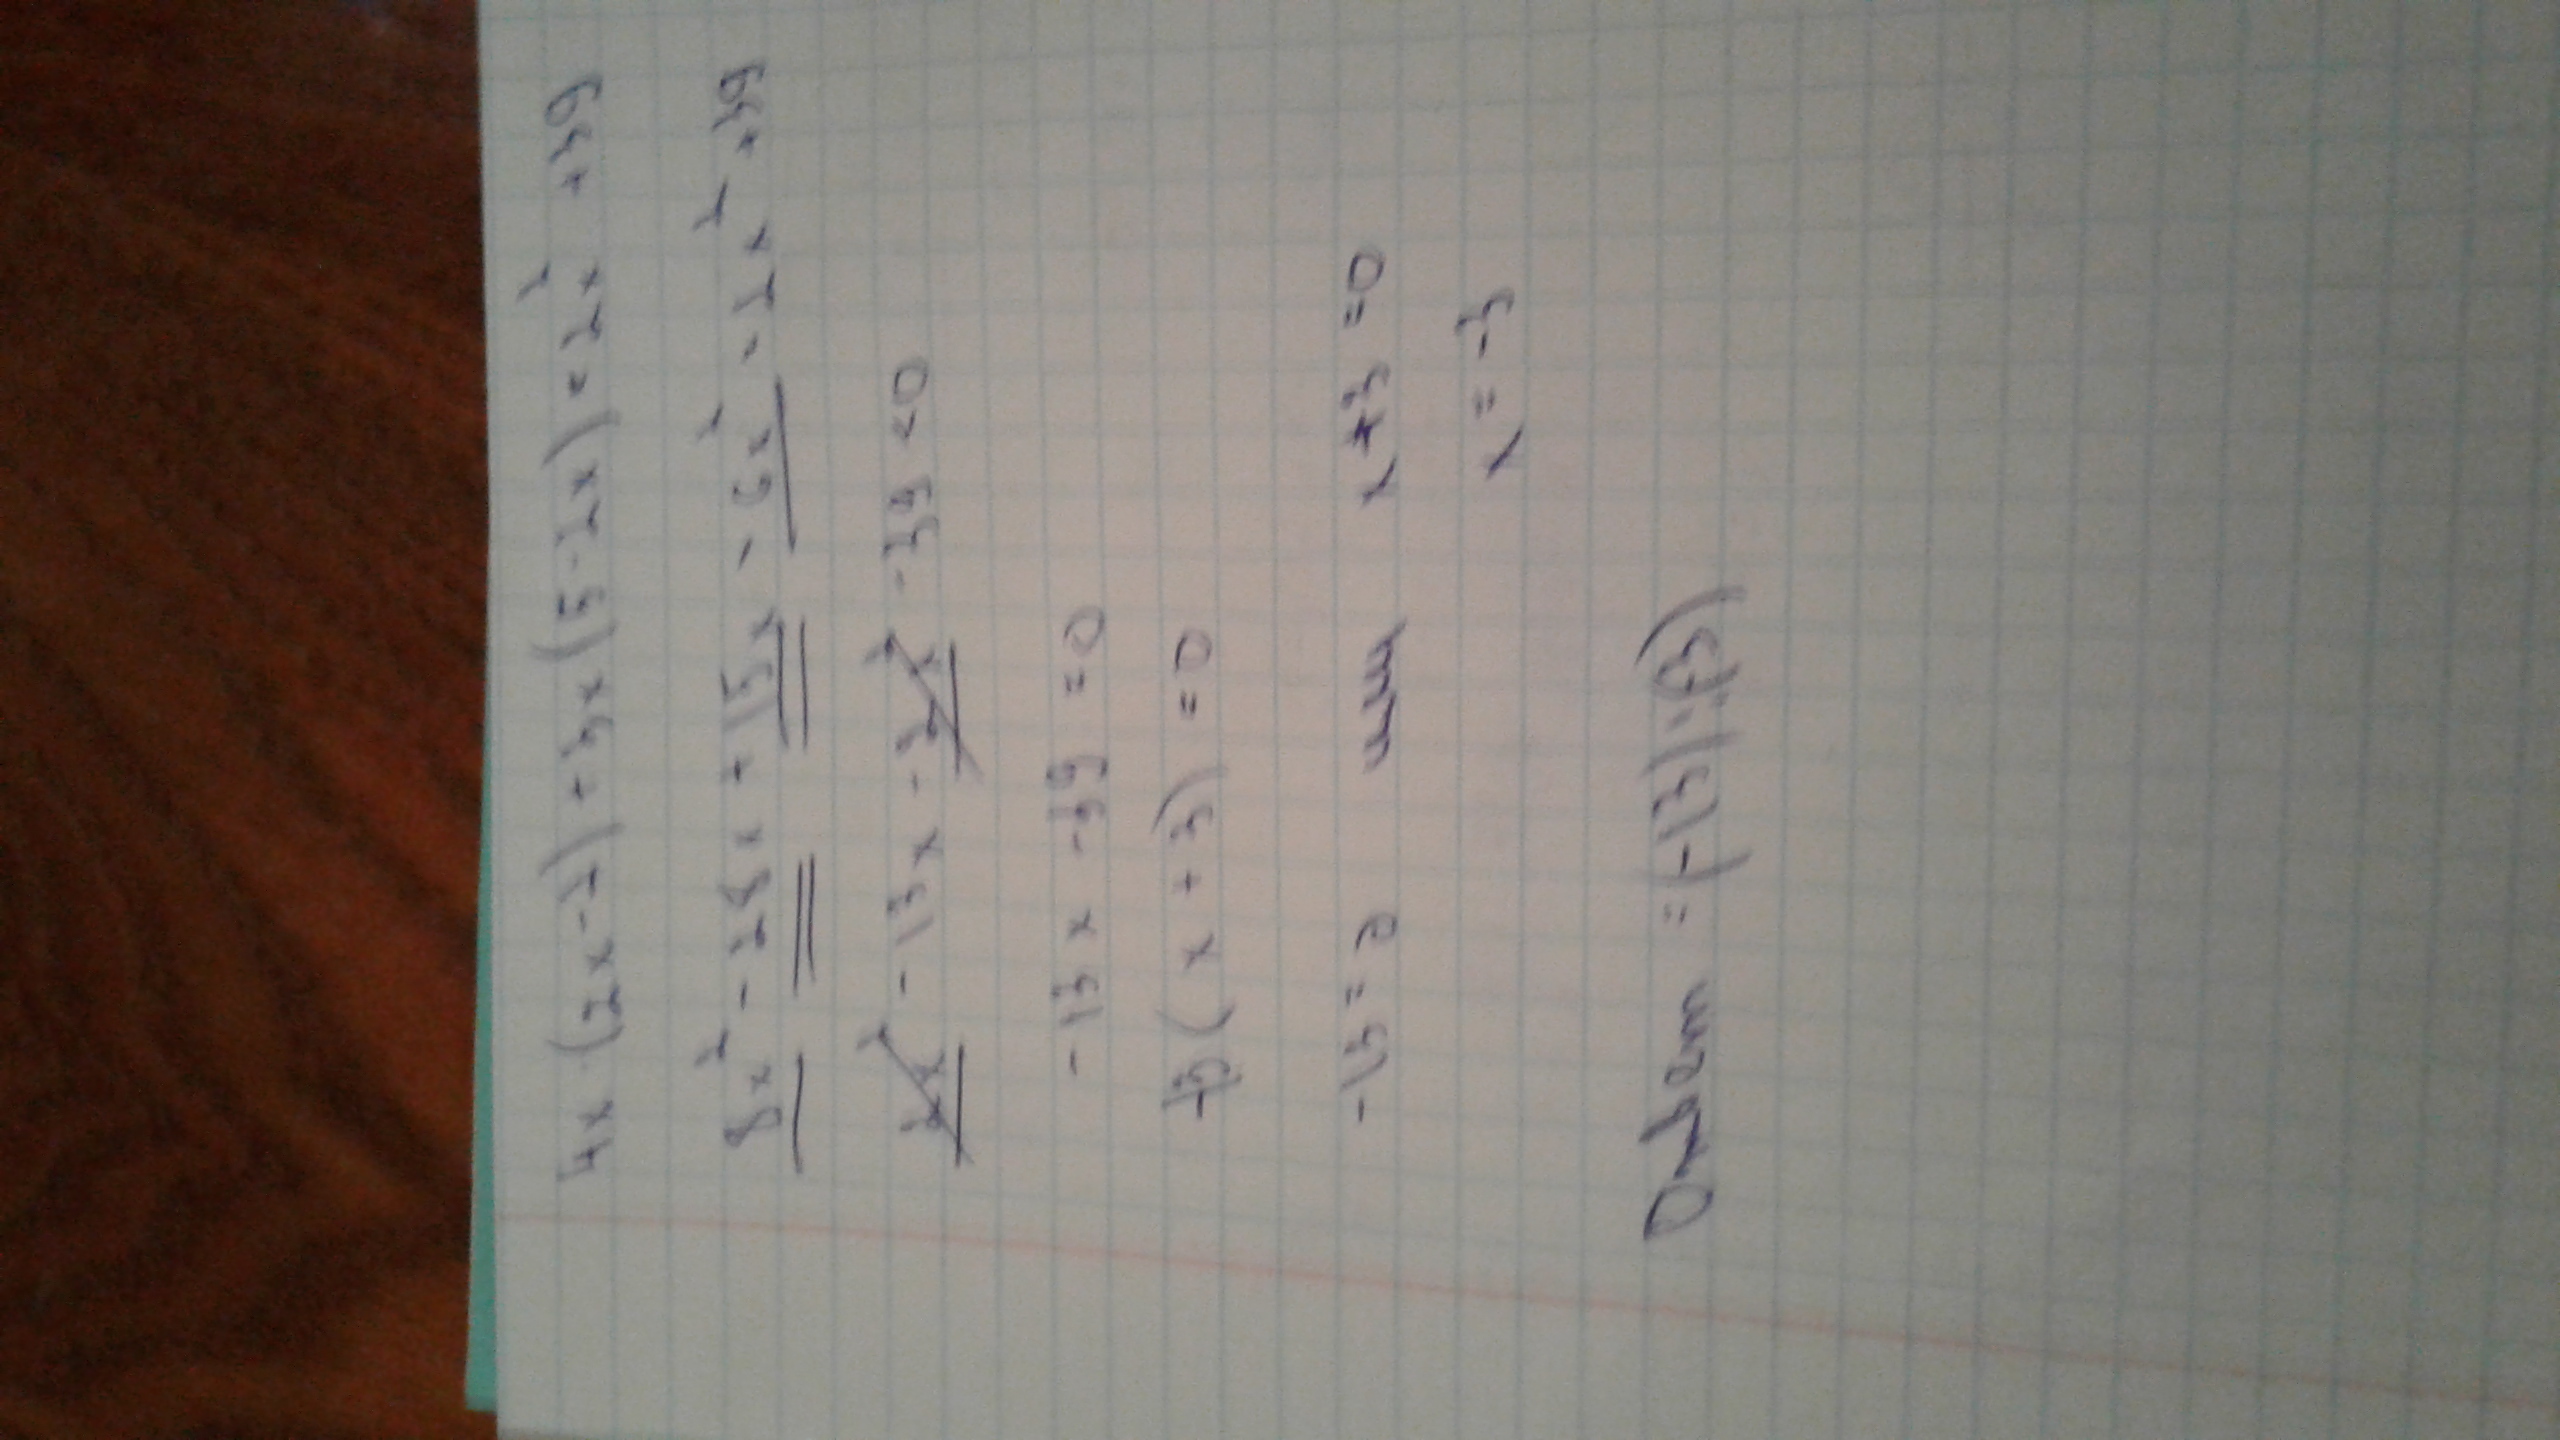 4x (2x-7) + 3x (5-2x) = 2x² + 39
8x² - 28x + 15x - 6x² - 2x² + 39
2x² - 13x - 2x² - 39 = 0
-13x - 39 = 0
-13 (x + 3) = 0
-13 = 0 или x + 3 = 0
x = -3
Ответ = (-13); (3)